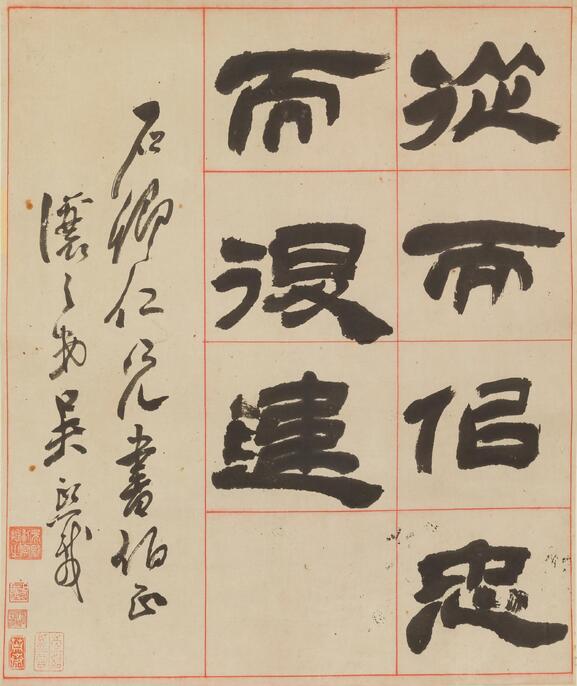 從而佀忠
而退違
石卿仁兄書伯正
讓之弟吳熙載